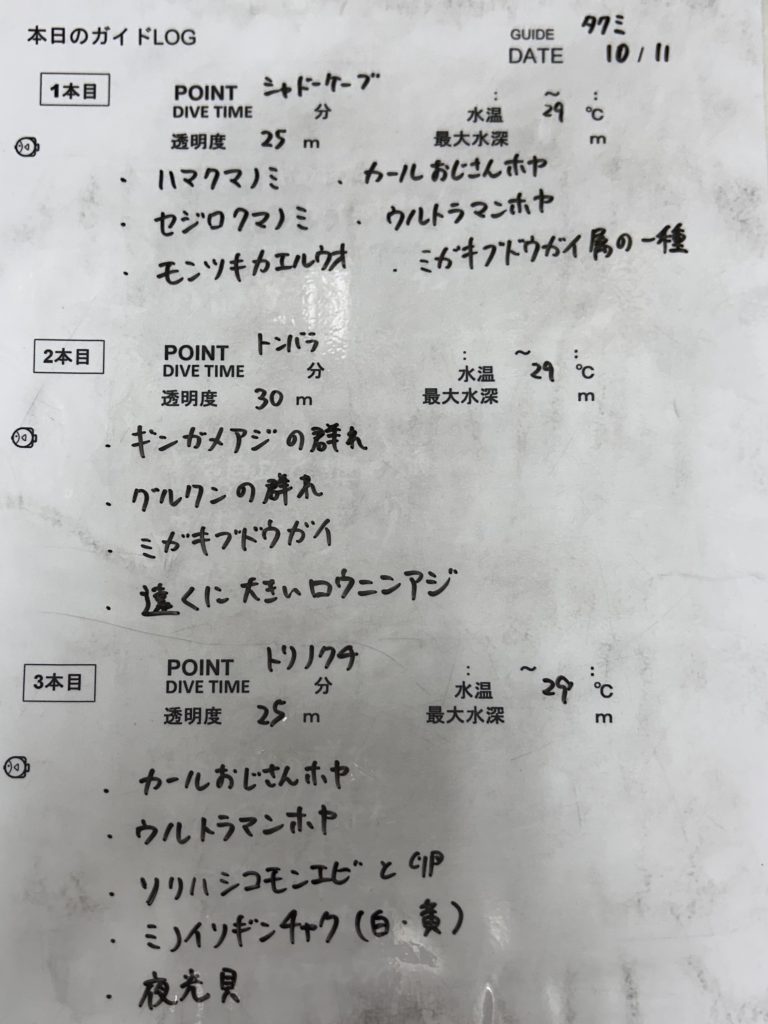 本日のガイドLOG
GUIDE タクミ
DATE 10/11
1本目 POINT シャドーケーブ : ～ :
DIVE TIME 分 水温 29 ℃
透明度 25 m 最大水深 m
・ハマクマノミ ・カールおじさんホヤ
・セジロクマノミ ・ウルトラマンホヤ
・モンツキカエルウオ ・ミガキブドウガイ属の一種
2本目 POINT トンバラ : ～ :
DIVE TIME 分 水温 29 ℃
透明度 30 m 最大水深 m
・ギンガメアジの群れ
・グルクンの群れ
・ミガキブドウガイ
・遠くに大きいロウニンアジ
3本目 POINT トリノクチ : ～ :
DIVE TIME 分 水温 29 ℃
透明度 25 m 最大水深 m
・カールおじさんホヤ
・ウルトラマンホヤ
・ソリハシコモンエビと卵
・ミノイソギンチャク(白・黄)
・夜光貝